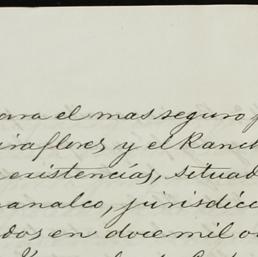 para el mas seguro p
iraflores y el Ranch
existencias, situad
analco, jurisdicc
dos en docemil o